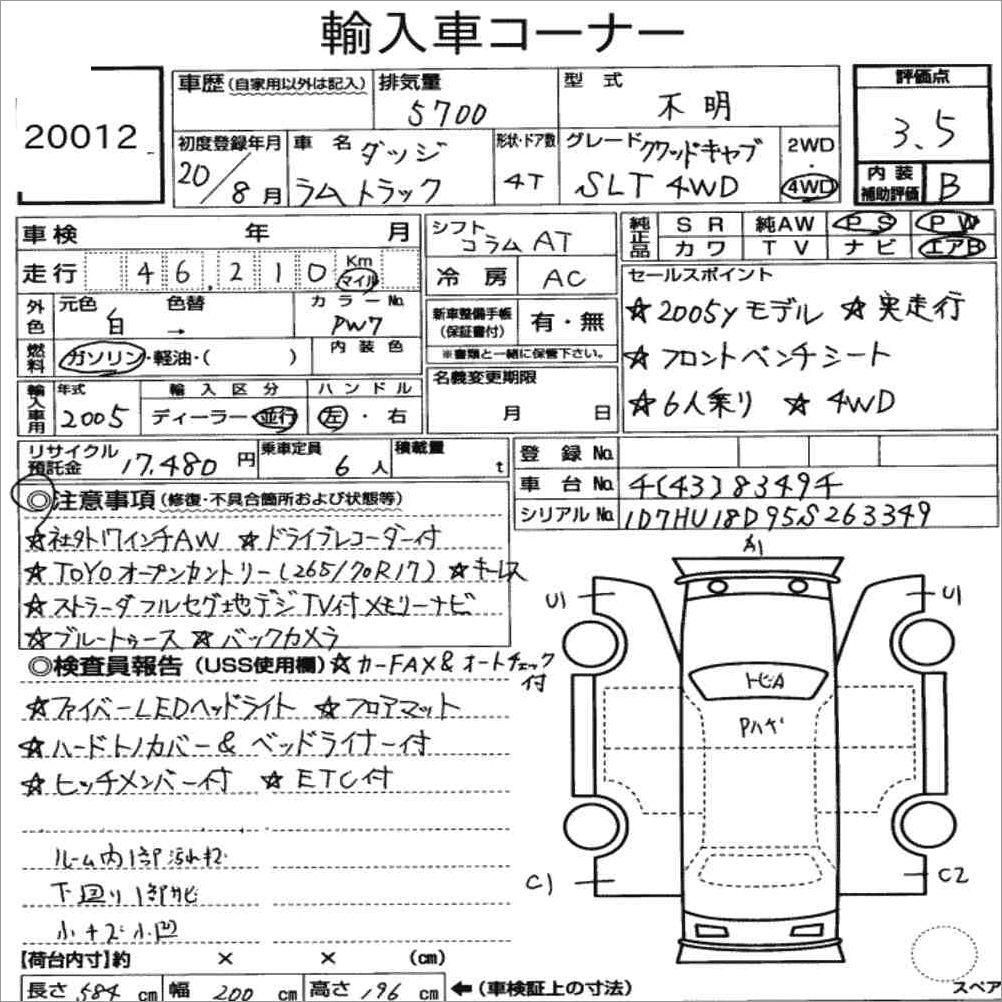 輸入車コーナー
20012
車歴(自家用以外は記入) 排気量 5700 型式 不明 評価点 3.5
初度登録年月 20/8月 車名 ダッジ ラムトラック 形状・ドア数 4T グレード クワッドキャブ SLT 4WD 2WD・4WD 内装補助評価 B
車検 年 月 シフト コラムAT 純正品 SR 純AW PS PW
カワ TV ナビ エアB
走行 46,210 Km マイル 冷房 AC
外色 元色 白 色替 → カラーNo. PW7 新車整備手帳(保証書付) 有・無
※書類と一緒に保管下さい。
燃料 ガソリン・軽油・( ) 内装色
名義変更期限 月 日
輸入車用 年式 2005 輸入区分 ディーラー・並行 ハンドル 左・右
セールスポイント
☆2005yモデル ☆実走行
☆フロントベンチシート
☆6人乗り ☆4WD
リサイクル預託金 17,480円 乗車定員 6人 積載量 t
登録No.
車台No. 4(43)83494
シリアルNo. 1D7HU18D95S263349
◎注意事項(修復・不具合箇所および状態等)
☆社外17インチAW ☆ドライブレコーダー付
☆TOYOオープンカントリー(265/70R17) ☆キーレス
☆ストラーダフルセグ地デジTV付メモリーナビ
☆ブルートゥース ☆バックカメラ
◎検査員報告(USS使用欄) ☆カーFAX&オートチェック付
☆ファイバーLEDヘッドライト ☆フロアマット
☆ハードトノカバー& ベッドライナー付
☆ヒッチメンバー付 ☆ETC付
ルーム内部汚れ
下回り
小キズ小凹
A1
U1 U1
トビA
Pハゲ
C1 C2
【荷台内寸】約 × × (cm)
長さ 584 cm 幅 200 cm 高さ 196 cm ←(車検証上の寸法)
スペア